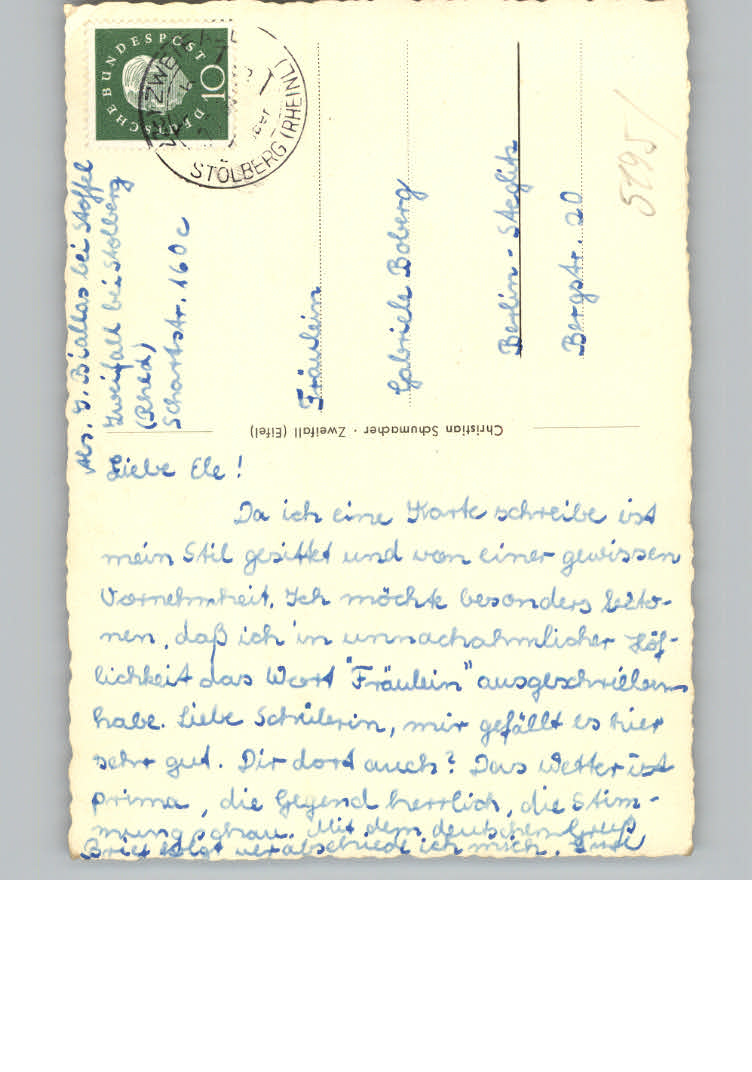 DEUTSCHE BUNDESPOST
10
STOLBERG (RHEINL)
Abs. J. Biallas bei Stoffel
Zweifall bei Stolberg
(Rhld)
Schartstr. 160c
Fräulein
Gabriele Boberg
Berlin-Steglitz
Bergstr. 20
5195/
Christian Schumacher · Zweifall (Eifel)
Liebe Ele!
Da ich eine Karte schreibe ist
mein Stil gesittet und von einer gewissen
Vornehmheit. Ich möchte besonders beto-
nen, daß ich in unnachahmlicher Höf-
lichkeit das Wort "Fräulein" ausgeschrieben
habe. Liebe Schülerin, mir gefällt es hier
sehr gut. Dir dort auch? Das Wetter ist
prima, die Gegend herrlich, die Stim-
mung schau. Mit dem deutschen Gruß
Brief folgt verabschiede ich mich.